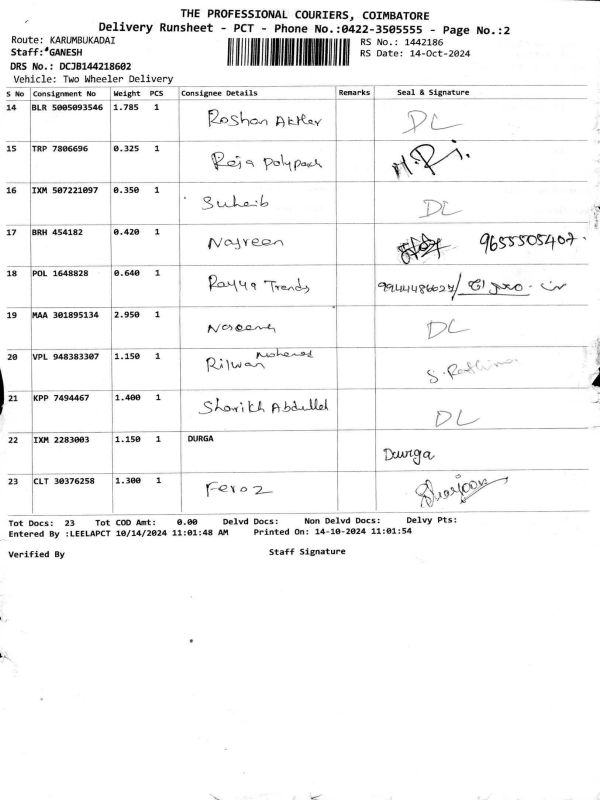 THE PROFESSIONAL COURIERS, COIMBATORE
Delivery Runsheet - PCT - Phone No.:0422-3505555 - Page No.:2
Route: KARUMBUKADAI
RS No.: 1442186
Staff: GANESH
RS Date: 14-Oct-2024
DRS No.: DCJB144218602
Vehicle: Two Wheeler Delivery
S No Consignment No Weight PCS Consignee Details Remarks Seal & Signature
14 BLR 5005093546 1.785 1 Roshan Akter DL
15 TRP 7806696 0.325 1 Raja polypack
16 IXM 507221097 0.350 1 Suheib DL
17 BRH 454182 0.420 1 Nasreen 9655505407.
18 POL 1648828 0.640 1 Trends
19 MAA 301895134 2.950 1 DL
20 VPL 948383307 1.150 1 Rilwan Mohamed
21 KPP 7494467 1.400 1 Sharikh Abdullah DL
22 IXM 2283003 1.150 1 DURGA Durga
23 CLT 30376258 1.300 1 Feroz
Tot Docs: 23 Tot COD Amt: 0.00 Delvd Docs: Non Delvd Docs: Delvy Pts:
Entered By :LEELAPCT 10/14/2024 11:01:48 AM Printed On: 14-10-2024 11:01:54
Verified By Staff Signature